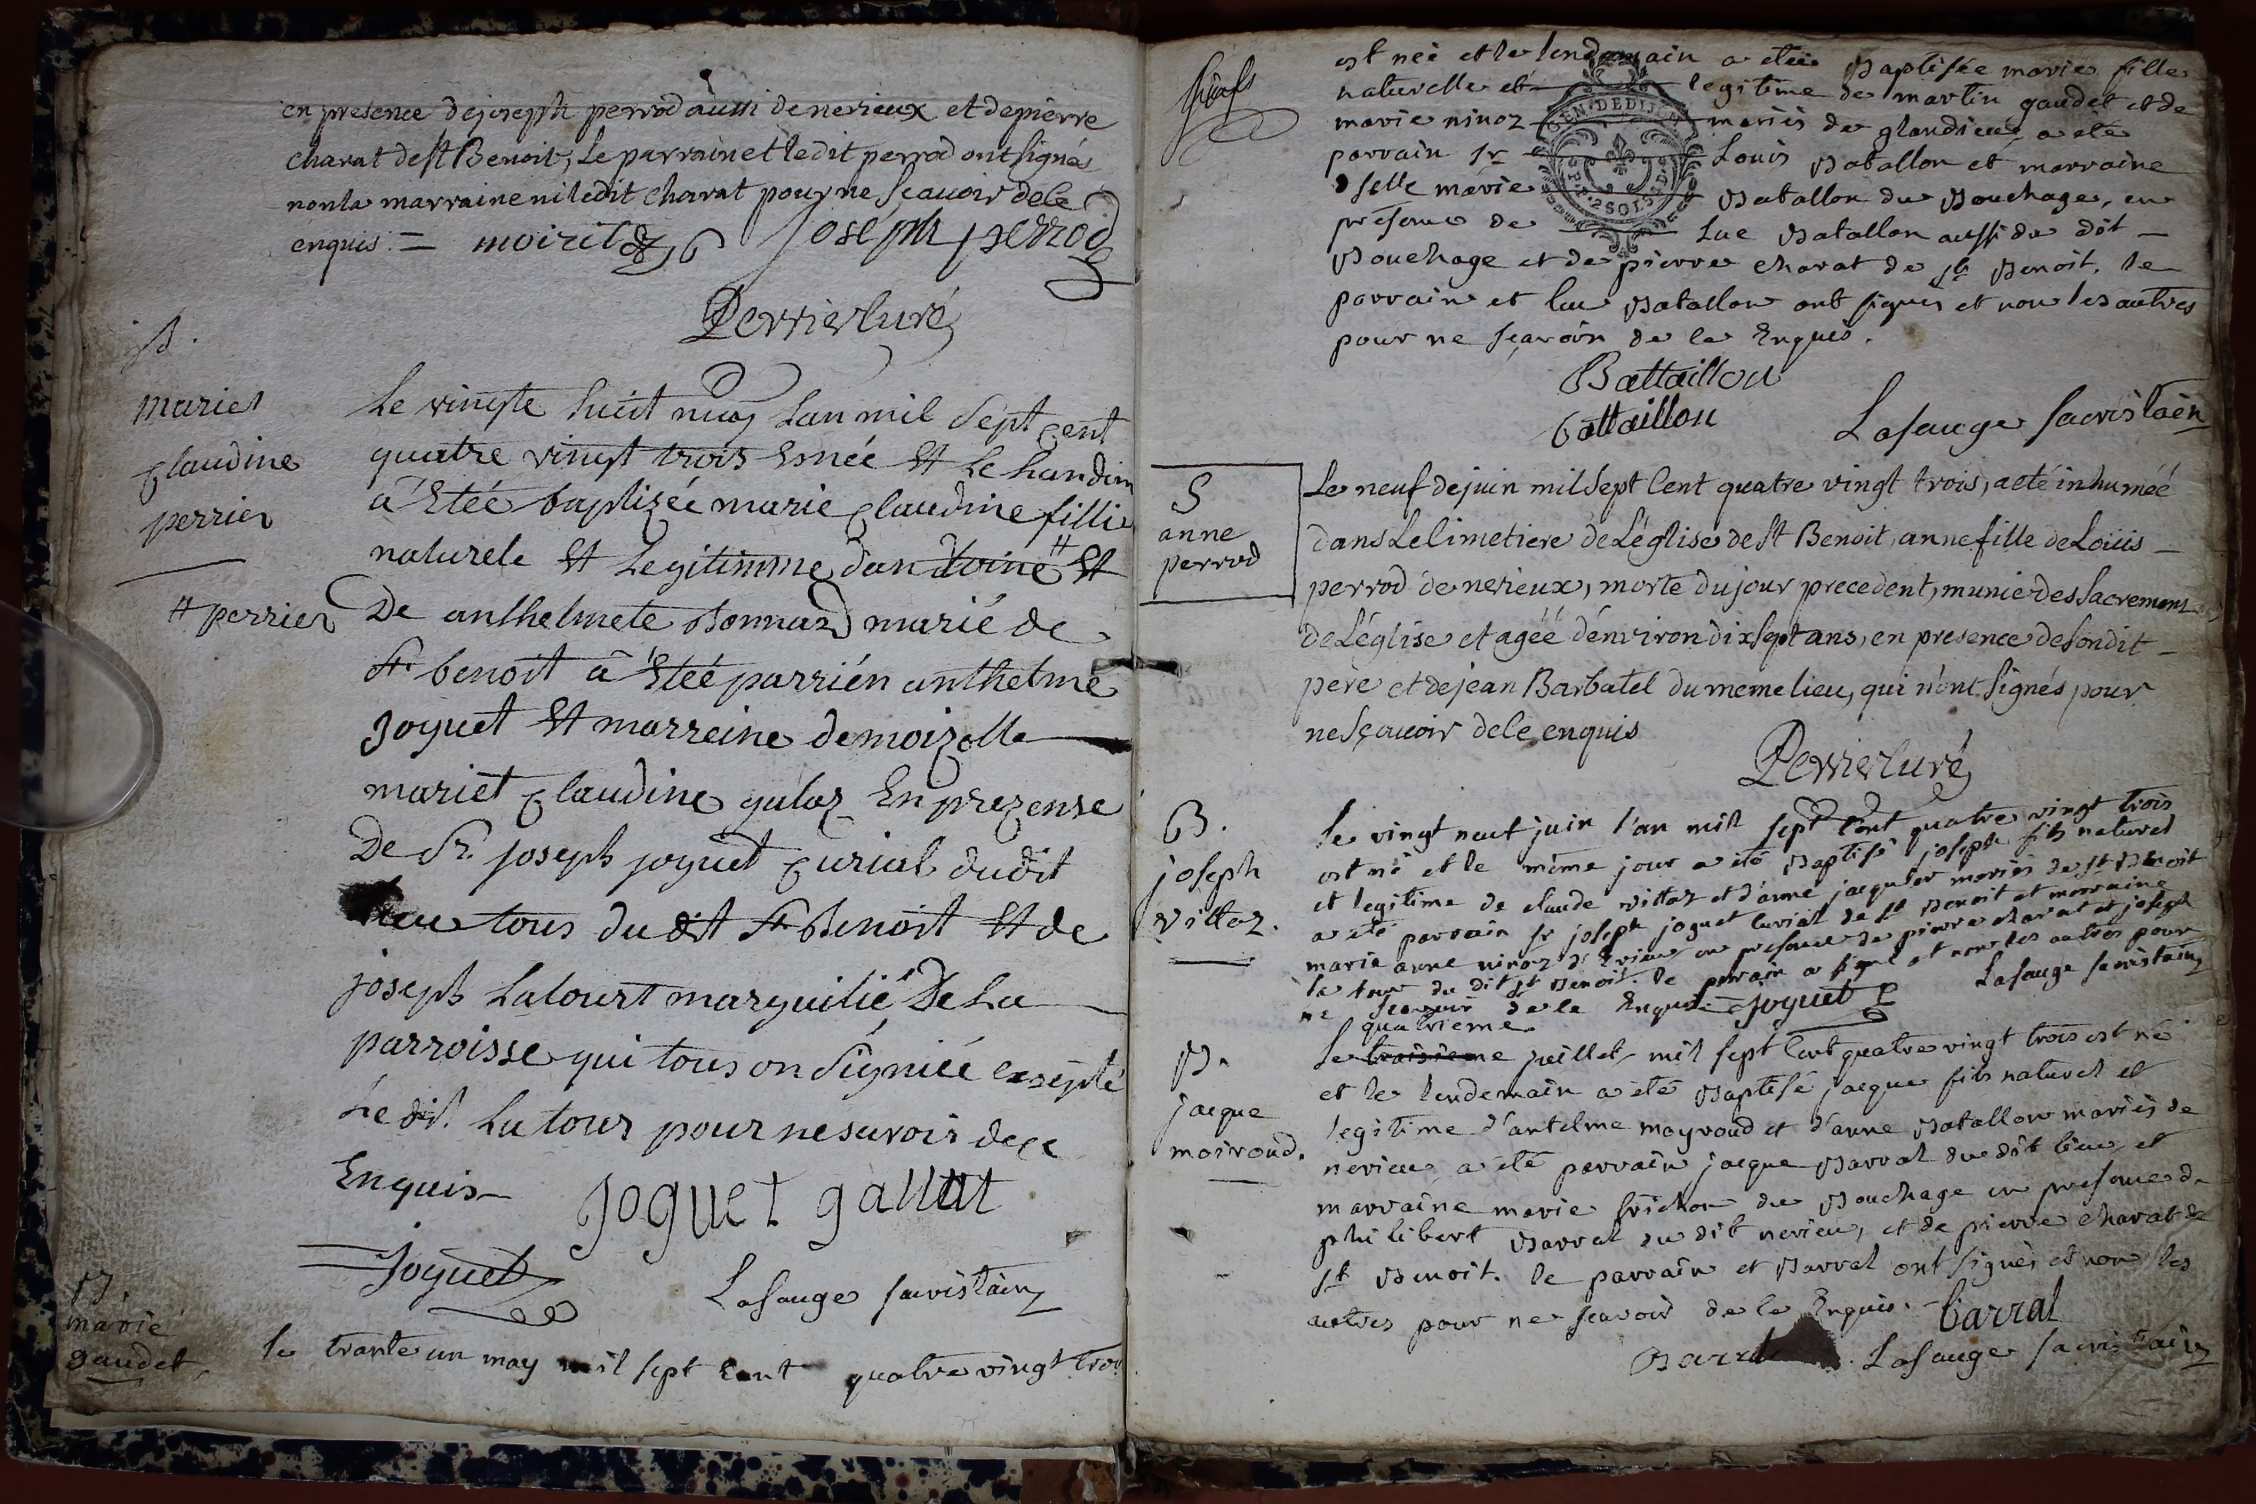 en presence de joseph perrod aussi de nerieux et de pierre
charat de st Benoit, Le parrain et ledit perrod ont signés
non la marraine ni ledit charat pour ne sçavoir de ce
enquis = moiret joseph perrod
Perrier curé
B.
mariet
claudine
perrier
Le vingte huit may Lan mil sept cent
quatre vingt trois Esnée Et Le Landim
a Etée baptizée marie claudine fillie
naturele Et Legitimme dandoine # Et
# perrier
De anthelmete Bonnard marié de
St benoit a Etée parrién anthelme
Joguet Et marreine demoizelle
mariet claudine galaz En prezense
De Sr. joseph joguet curial dudit
lieu tous du dit St Benoit Et de
joseph Latourt marguilié De La
parroisse qui tous on Signiéé exsepté
Le dit Latour pour ne savoir de ce
Enquis
joguet gallat
Joguet
Lasauge sacristain
B.
marie
gaudet
le trante un may mil sept cent quatre vingt trois
est neé et le lendemain a eteé Baptisée marie fille
naturelle et legitime de martin gaudet et de
marie ninoz mariés de glandieu, a été
parrain sr Louis Batallon et marraine
dselle marie Batallon du Bouchage, en
présence de Luc Batallon aussi du dit
Bouchage et de pierre charat de st Benoit. le
parrain et luc Batallon ont signés et non les autres
pour ne sçavoir de ce Enquis.
GEN. DE DIJON
2 SOLS
Battaillon
battaillon
Lasauge sacristain
S
anne
perrod
Le neuf de juin mil sept Cent quatre vingt trois, a eté inhumeé
dans Le Cimetiere de L'église de st Benoit, anne fille de Loüis
perrod de nerieux, morte du jour precedent, munie des Sacremens
de L'église et ageé d'environ dix sept ans, en presence de son dit
pere et de jean Barbatel du meme lieu, qui n'ont signés pour
ne sçavoir de ce enquis
Perrier curé
B.
joseph
villoz.
le vingt neuf juin l'an mil sept Cent quatre vingt trois
est né et le même jour a été Baptisé joseph fils naturel
et legitime de claude villoz et d'anne jacquier mariés de st Benoit
a été parrain sr joseph joguet curial de st Benoit et marraine
marie anne ninoz d'Evieu en presence de pierre charat et joseph
la tour du dit st Benoit. le parrain a signé et non les autres pour
ne sçavoir de ce Enquis = joguet
Lasauge sacristain
B.
jacque
moiroud.
quatrieme
Le troisieme juillet mil sept Cent quatre vingt trois est né
et le lendemain a été Baptisé jacque fils naturel et
legitime d'antelme mayroud et d'anne Batallon mariés de
nerieu, a été parrain jacque Barral du dit lieu, et
marraine marie frichon du Bouchage en presence de
philibert Barral du dit nerieu, et de pierre charat de
st Benoit. le parrain et Barral ont signés et non les
autres pour ne scavoir de ce Enquis.
barral
Barral
Lasauge sacristain